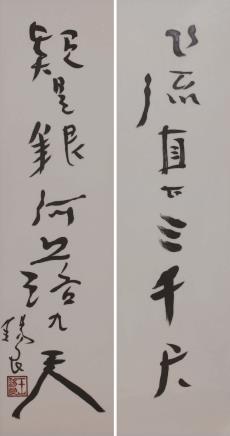 飞流直下三千尺
疑是銀河落九天